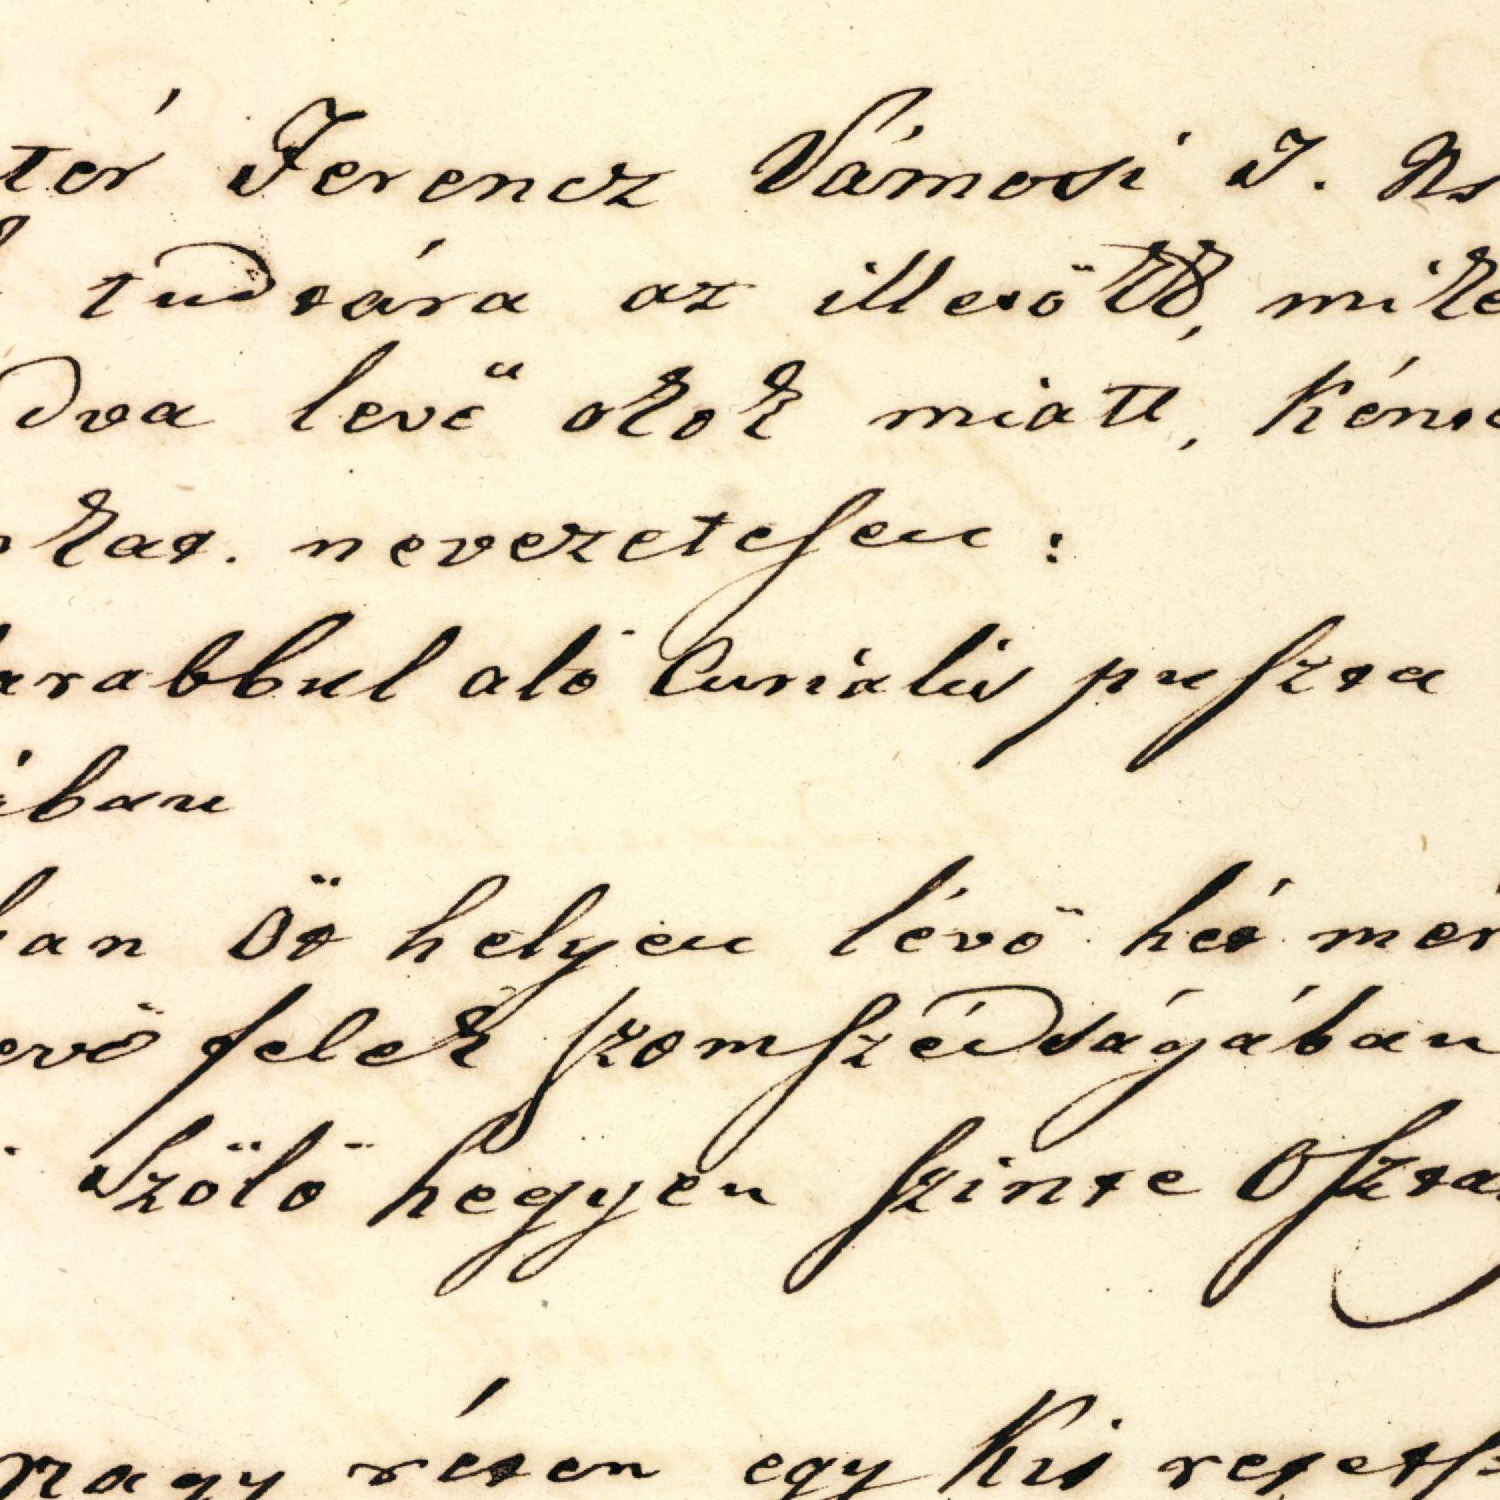 tér Ferencz Vámosi I. Ns
tudtára az illetőkk, mike
dva levő okok miatt, Kénte
kat. nevezetesen:
arabbul aló Curiális puszta
iban
ban Öt helyen lévő hét mér
evő felek szomszédságában
Szőlő hegyen szinte Oszta
nagy réten egy Kis retets